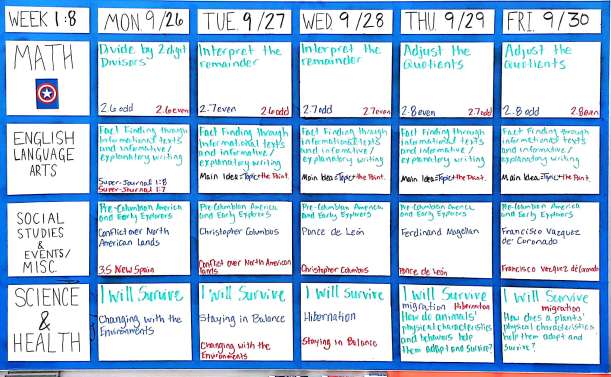 WEEK 1:8 MON. 9/26 TUE. 9/27 WED 9/28 THU. 9/29 FRI. 9/30
MATH
Divide by 2 digit
Divisors
2.6 odd 2.6 even
Interpret the
remainder
2.7 even 2.6 odd
Interpret the
remainder
2.7 odd 2.7 even
Adjust the
Quotients
2.8 even 2.7 odd
Adjust the
Quotients
2.8 odd 2.8 even
ENGLISH
LANGUAGE
ARTS
Fact Finding through
Informational texts
and informative/
explanatory writing
Super Journal 1:8
Super Journal 1:7
Fact Finding through
Informational texts
and informative/
explanatory writing
Main Idea=Topic+the Point.
Fact Finding through
Informational texts
and informative/
explanatory writing
Main Idea=Topic+the Point.
Fact Finding through
Informational texts
and informative/
explanatory writing
Main Idea=Topic+the Point.
Fact Finding through
Informational texts
and informative/
explanatory writing
Main Idea=Topic+the Point.
SOCIAL
STUDIES
&
EVENTS/
MISC.
Pre-Columbian America
and Early Explorers
Conflict over North
American lands
3.5 New Spain
Pre-Columbian America
and Early Explorers
Christopher Columbus
Conflict over North American
lands
Pre-Columbian America
and Early Explorers
Ponce de León
Christopher Columbus
Pre-Columbian America
and Early Explorers
Ferdinand Magellan
Ponce de León
Pre-Columbian America
and Early Explorers
Francisco Vazquez
de Coronado
Francisco Vazquez de Coronado
SCIENCE
&
HEALTH
I Will Survive
Changing with the
Environments
I Will Survive
Staying in Balance
Changing with the
Environments
I Will Survive
Hibernation
Staying in Balance
I Will Survive
migration Hibernation
How do animals'
physical characteristics
and behaviors help
them adapt and survive?
I Will Survive
migration
How does a plants'
physical characteristics
help them adapt and
survive?